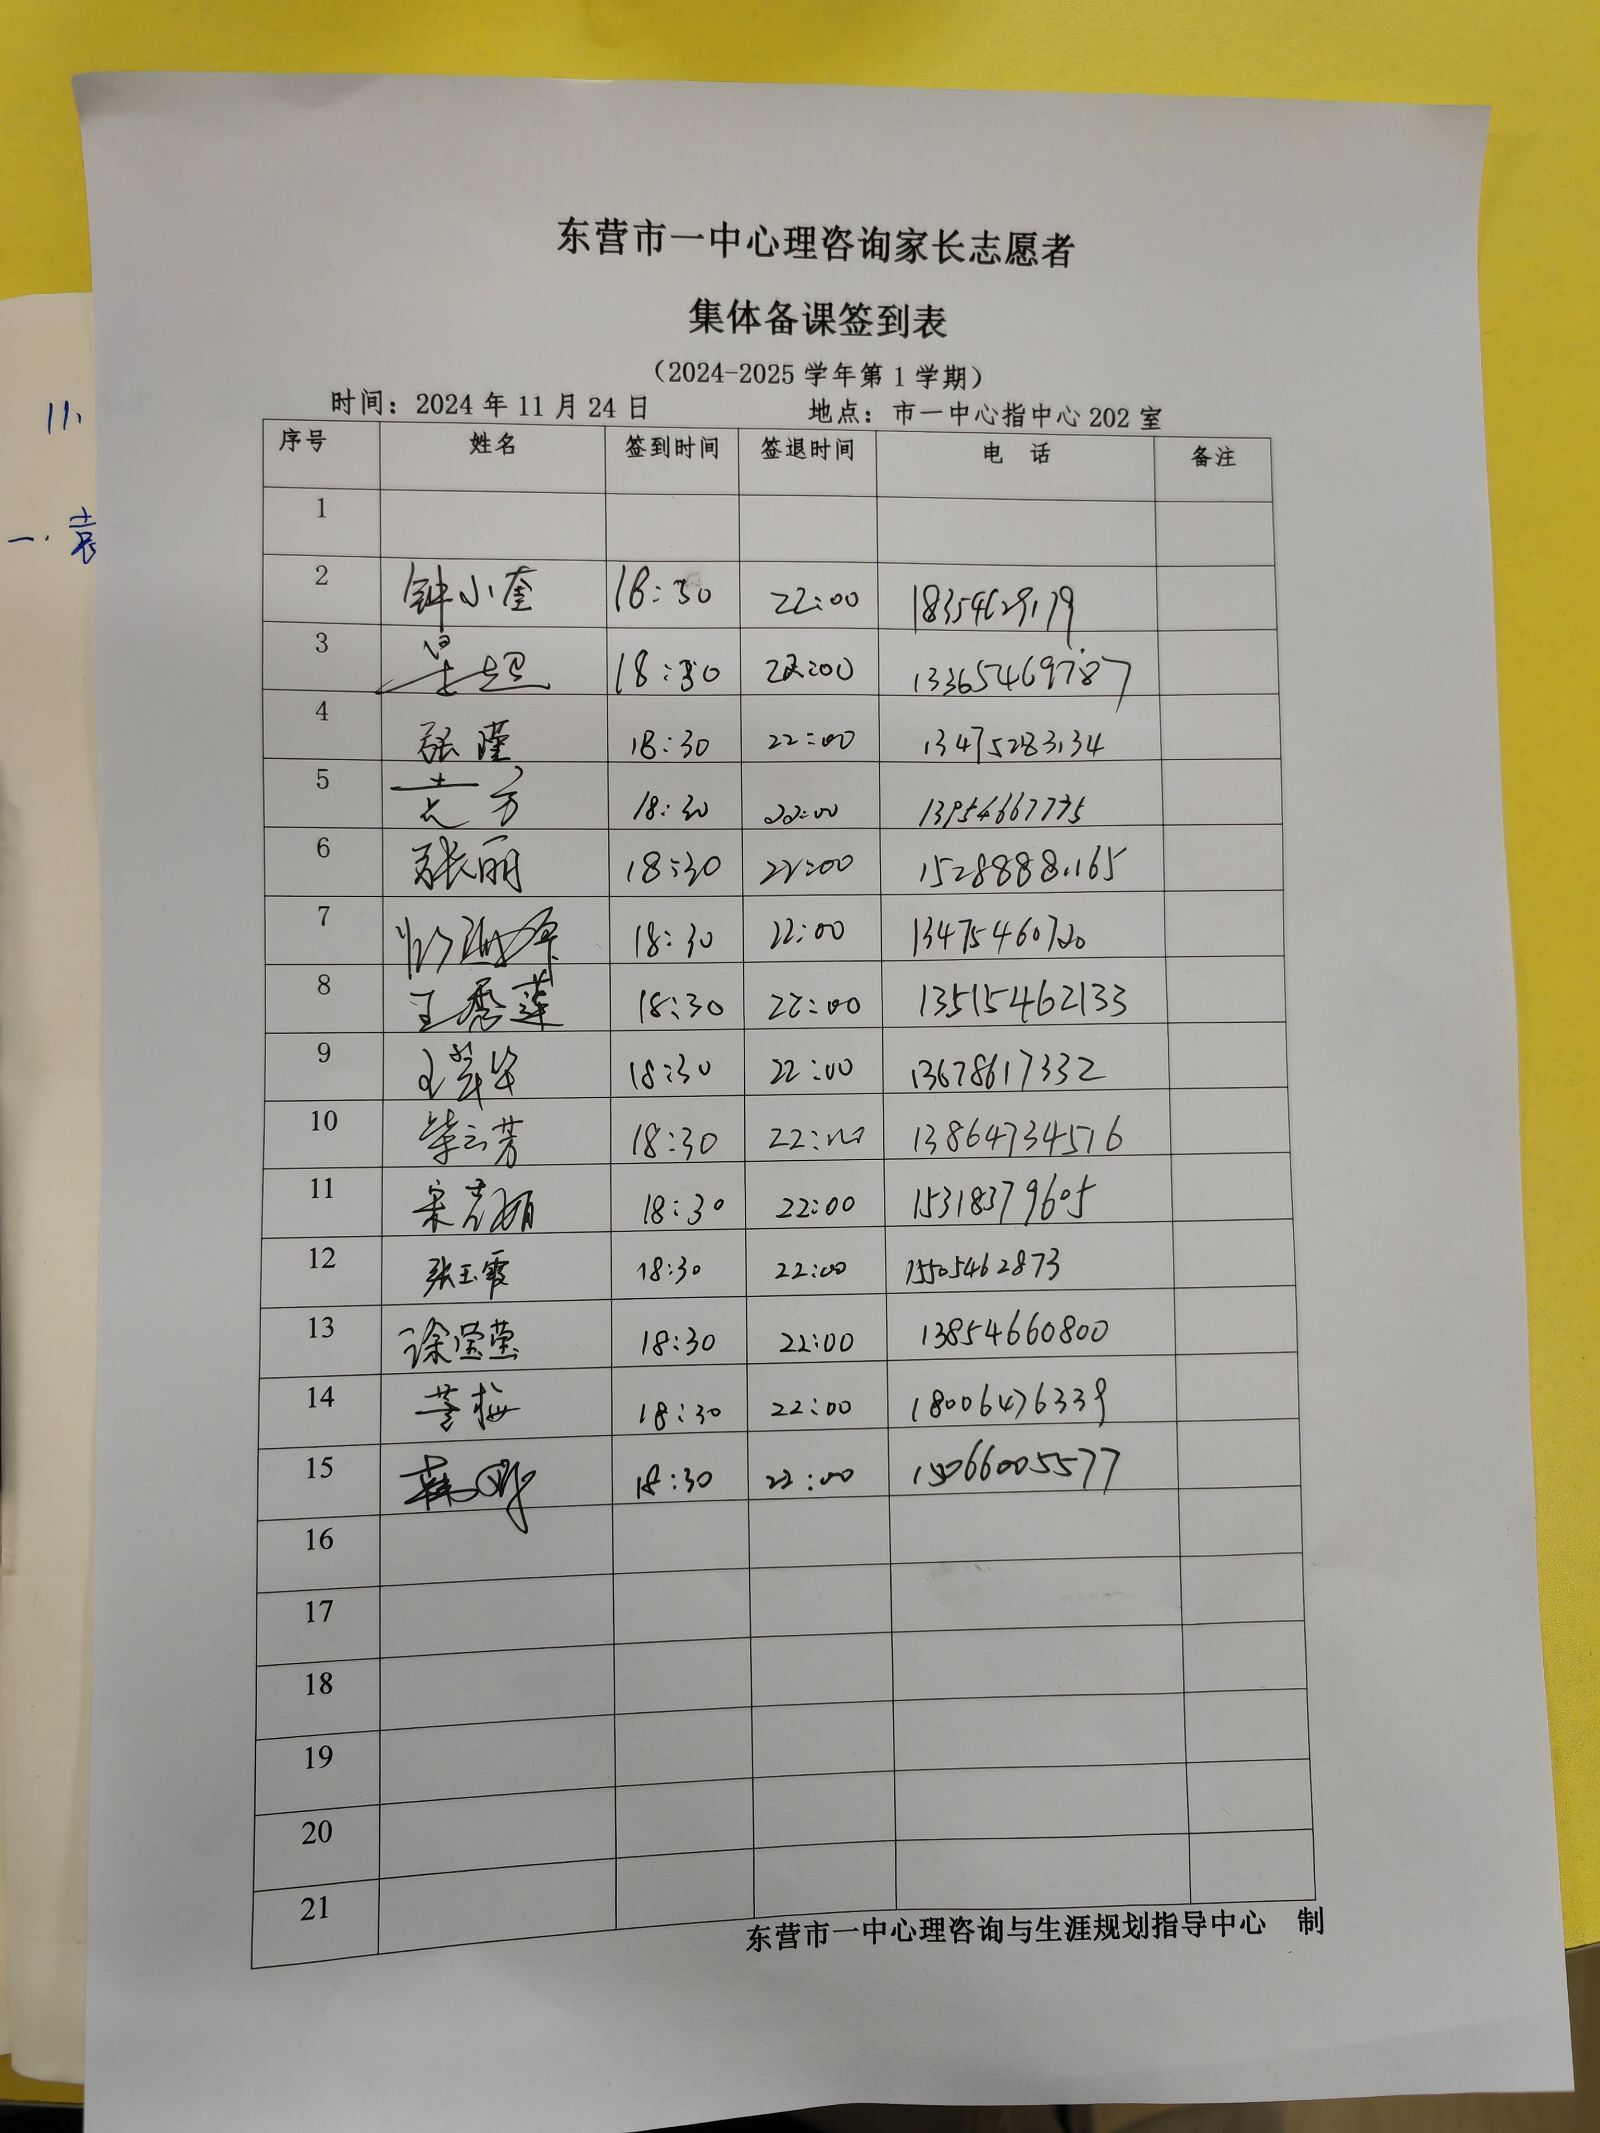 东营市一中心理咨询家长志愿者
集体备课签到表
（2024-2025 学年第 1 学期）
时间：2024 年 11 月 24 日 地点：市一中心指中心 202 室
序号 姓名 签到时间 签退时间 电 话 备注
1
2 钟小奎 18:30 22:00 18354629179
3 18:30 22:00 13365469787
4 张瑾 18:30 22:00 13475283134
5 方 18:30 22:00 13954667775
6 张丽 18:30 22:00 15288881165
7 18:30 22:00 13475460720
8 王秀莲 18:30 22:00 13515462133
9 王翠华 18:30 22:00 13678617332
10 柴云芳 18:30 22:00 13864734576
11 宋志娟 18:30 22:00 15318379605
12 张玉霞 18:30 22:00 15505462873
13 徐莹莹 18:30 22:00 13854660800
14 梅 18:30 22:00 18006476339
15 18:30 22:00 15066005577
16
17
18
19
20
21
东营市一中心理咨询与生涯规划指导中心 制
11、
一、袁